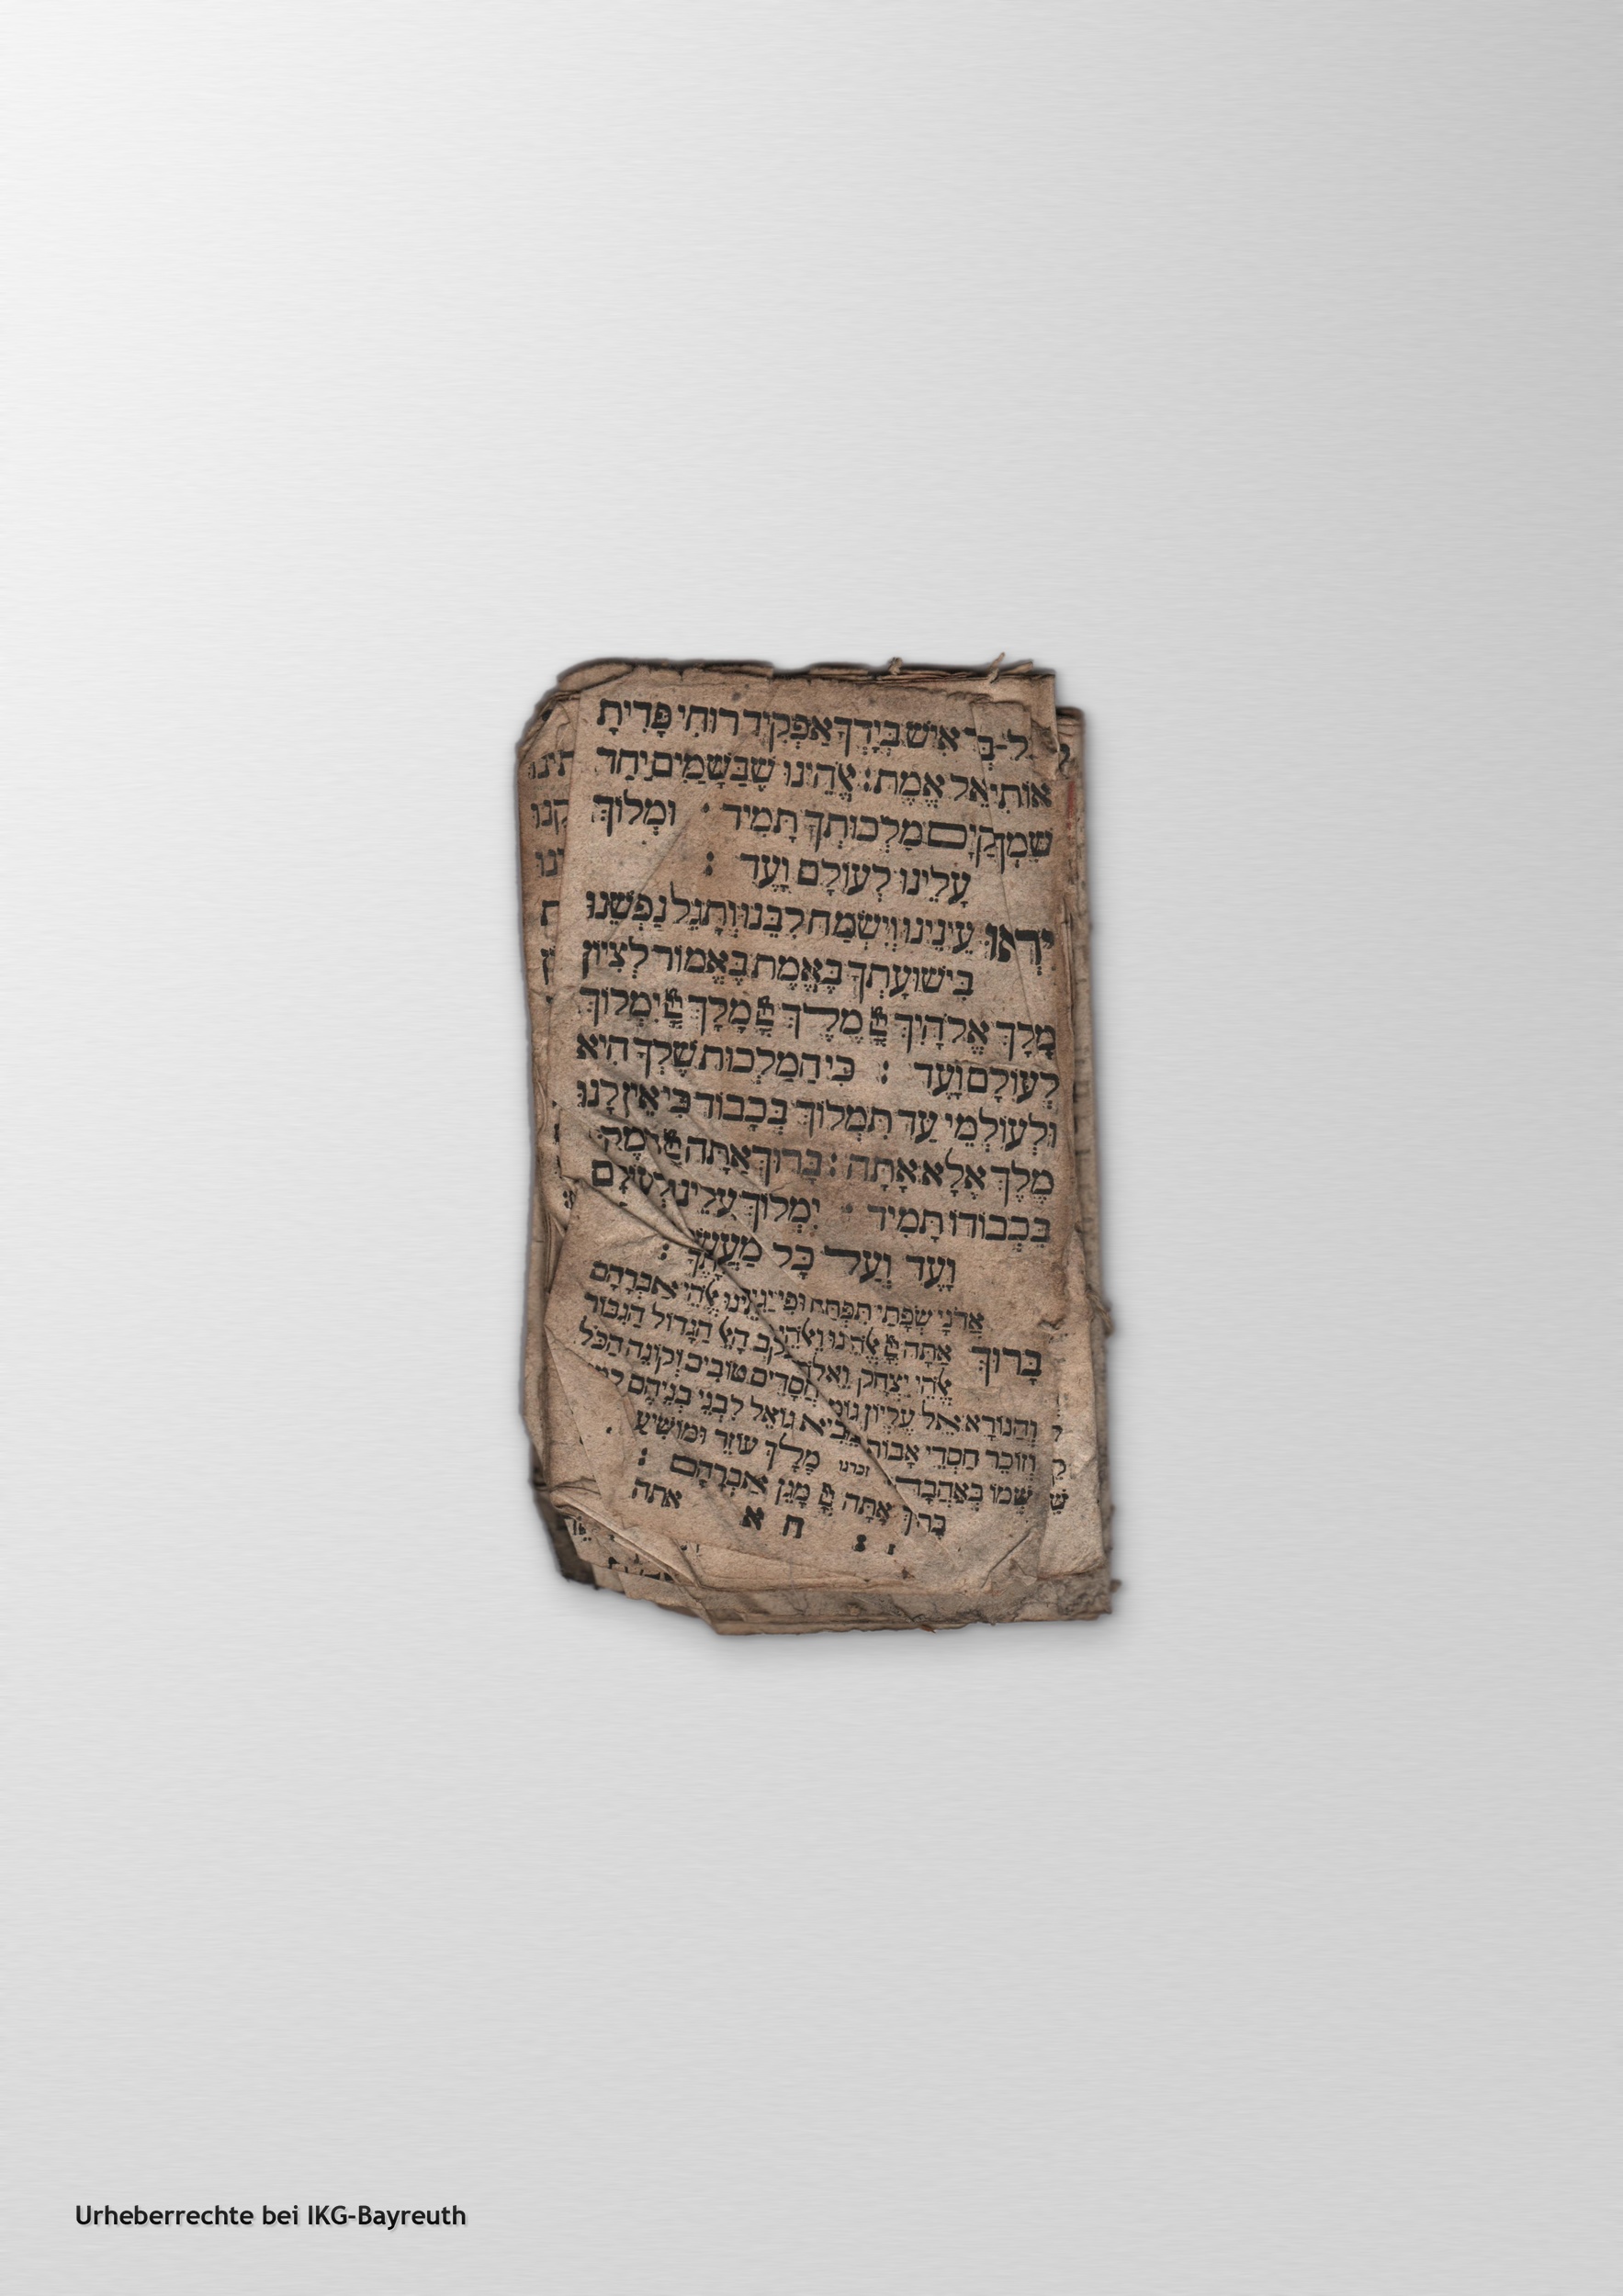 כָּל בְּשַׂר אִישׁ בְּיָדְךָ אַפְקִיד רוּחִי פָּדִיתָ
אוֹתִי אֵל אֱמֶת: אֱהֵינוּ שֶׁבַּשָּׁמַיִם יַחֵד
שִׁמְךָ קַיֵּם מַלְכוּתְךָ תָּמִיד · וּמְלוֹךְ
עָלֵינוּ לְעוֹלָם וָעֶד :
יִרְאוּ עֵינֵינוּ וְיִשְׂמַח לִבֵּנוּ וְתָגֵל נַפְשֵׁנוּ
בִּישׁוּעָתְךָ בֶּאֱמֶת בֶּאֱמוֹר לְצִיּוֹן
מָלַךְ אֱלֹהָיִךְ יְיָ מֶלֶךְ יְיָ מָלָךְ יְיָ יִמְלוֹךְ
לְעוֹלָם וָעֶד : כִּי הַמַּלְכוּת שֶׁלְּךָ הִיא
וּלְעוֹלְמֵי עַד תִּמְלוֹךְ בְּכָבוֹד כִּי אֵין לָנוּ
מֶלֶךְ אֶלָּא אָתָּה : בָּרוּךְ אַתָּה יְיָ הַמֶּלֶךְ
בִּכְבוֹדוֹ תָּמִיד · יִמְלוֹךְ עָלֵינוּ לְעוֹלָם
וָעֶד וְעַל כָּל מַעֲשָׂ :
אֲדֹנָי שְׂפָתַי תִּפְתָּח וּפִי יַגִּיד
בָּרוּךְ אַתָּה יְיָ אֱהֵינוּ וֵאהֵי אֱהֵי אַבְרָהָם
אֱהֵי יִצְחָק וֵאלֹהֵי יַעֲקֹב הָאֵל הַגָּדוֹל הַגִּבּוֹר
וְהַנּוֹרָא אֵל עֶלְיוֹן גּוֹמֵל חֲסָדִים טוֹבִים וְקוֹנֵה הַכֹּל
וְזוֹכֵר חַסְדֵי אָבוֹת וּמֵבִיא גוֹאֵל לִבְנֵי בְנֵיהֶם לְמַעַן
שְׁמוֹ בְּאַהֲבָה זכרנו מֶלֶךְ עוֹזֵר וּמוֹשִׁיעַ
בָּרוּךְ אַתָּה יְיָ מָגֵן אַבְרָהָם :
ח א אתה
Urheberrechte bei IKG-Bayreuth